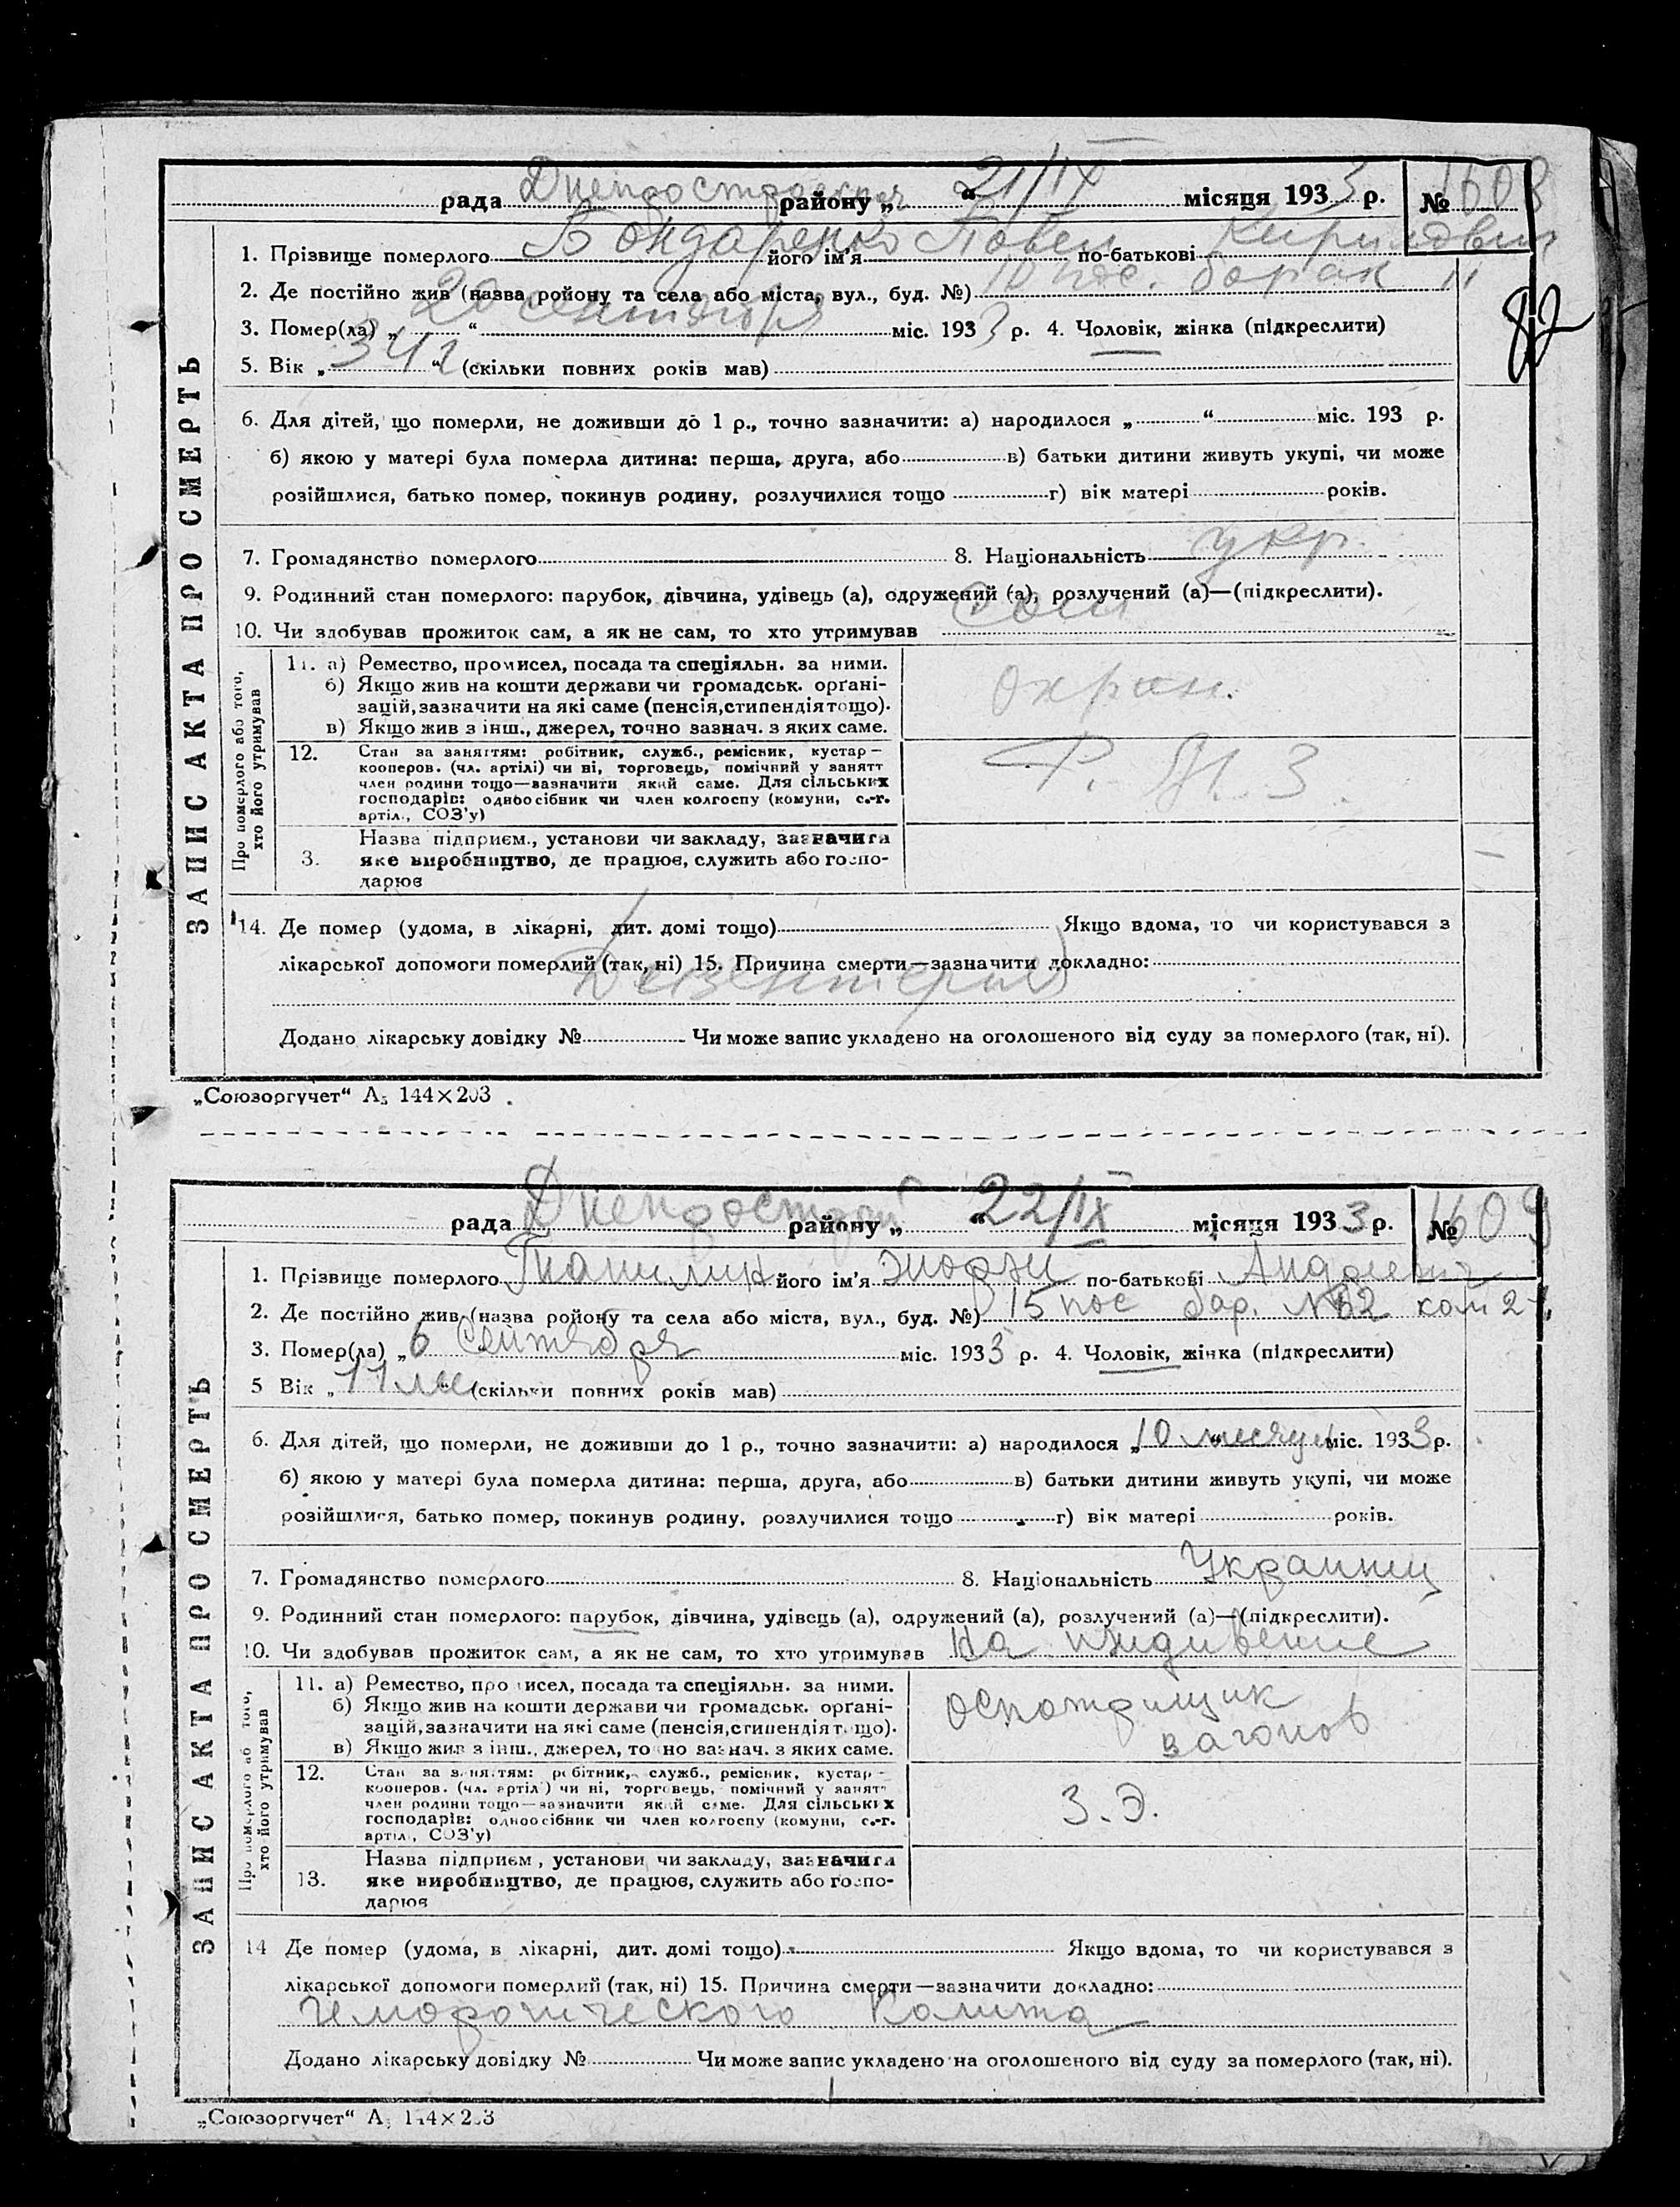 рада Днепростроевская району „ “ 21/IX місяця 1933 р. № 1608
1. Прізвище померлого Бондаренко його ім'я Павел по-батькові Кирилович
2. Де постійно жив (назва ройону та села або міста, вул., буд. №) 10 пос. барак 11
82
3. Помер(ла) „ 20 “ сентября міс. 1933 р. 4. Чоловік, жінка (підкреслити)
5. Вік „ 34 г “ (скільки повних років мав)
6. Для дітей, що померли, не доживши до 1 р., точно зазначити: а) народилося „ “ міс. 193 р.
б) якою у матері була померла дитина: перша, друга, або в) батьки дитини живуть укупі, чи може
розійшлися, батько помер, покинув родину, розлучилися тощо г) вік матері років.
7. Громадянство померлого 8. Національність укр.
9. Родинний стан померлого: парубок, дівчина, удівець (а), одружений (а), розлучений (а)—(підкреслити).
10. Чи здобував прожиток сам, а як не сам, то хто утримував сам
ЗАПИС АКТА ПРО СМЕРТЬ
Про померлого або того, хто його утримував
11. а) Ремество, промисел, посада та спеціяльн. за ними.
б) Якщо жив на кошти держави чи громадськ. орґані-
зацій, зазначити на які саме (пенсія, стипендія тощо).
в) Якщо жив з інш., джерел, точно зазнач. з яких саме.
охран.
12. Стан за заняттям: робітник, служб., ремісник, кустар—
кооперов. (чл. артілі) чи ні, торговець, помічний у занятт
член родини тощо—зазначити який саме. Для сільських
господарів: одноосібник чи член колгоспу (комуни, с.-г.
артіл., СОЗ'у)
3. Назва підприєм., установи чи закладу, зазначити
яке виробництво, де працює, служить або госпо-
дарює
14. Де помер (удома, в лікарні, дит. домі тощо) Якщо вдома, то чи користувався з
лікарської допомоги померлий (так, ні) 15. Причина смерти—зазначити докладно:
Дизентерия
Додано лікарську довідку № Чи може запис укладено на оголошеного від суду за померлого (так, ні).
„Союзоргучет“ А5 144×203
рада Днепрострой району „ “ 22/IX місяця 1933 р. № 1609
1. Прізвище померлого його ім'я по-батькові Андреевич
2. Де постійно жив (назва ройону та села або міста, вул., буд. №) 15 пос бар. № 82 ком 24
3. Помер(ла) „ 6 сентября міс. 1933 р. 4. Чоловік, жінка (підкреслити)
5 Вік „ 11 мес (скільки повних років мав)
6. Для дітей, що померли, не доживши до 1 р., точно зазначити: а) народилося „ 10 “ месяц міс. 1933 р.
б) якою у матері була померла дитина: перша, друга, або в) батьки дитини живуть укупі, чи може
розійшлися, батько помер, покинув родину, розлучилися тощо г) вік матері років.
7. Громадянство померлого 8. Національність Украинец
9. Родинний стан померлого: парубок, дівчина, удівець (а), одружений (а), розлучений (а)—(підкреслити).
10. Чи здобував прожиток сам, а як не сам, то хто утримував На иждивение
ЗАПИС АКТА ПРО СМЕРТЬ
Про померлого або того, хто його утримував
11. а) Ремество, промисел, посада та спеціяльн. за ними.
б) Якщо жив на кошти держави чи громадськ. орґані-
зацій, зазначити на які саме (пенсія, стипендія тощо).
в) Якщо жив з інш., джерел, точно зазнач. з яких саме.
осмотрщик
вагонов
12. Стан за заняттям: робітник, служб., ремісник, кустар—
кооперов. (чл. артілі) чи ні, торговець, помічний у занятт
член родини тощо—зазначити який саме. Для сільських
господарів: одноосібник чи член колгоспу (комуни, с.-г.
артіл., СОЗ'у)
З. Э.
13. Назва підприєм., установи чи закладу, зазначити
яке виробництво, де працює, служить або госпо-
дарює
14 Де помер (удома, в лікарні, дит. домі тощо) Якщо вдома, то чи користувався з
лікарської допомоги померлий (так, ні) 15. Причина смерти—зазначити докладно:
гемороического колита
Додано лікарську довідку № Чи може запис укладено на оголошеного від суду за померлого (так, ні).
„Союзоргучет“ А5 144×203